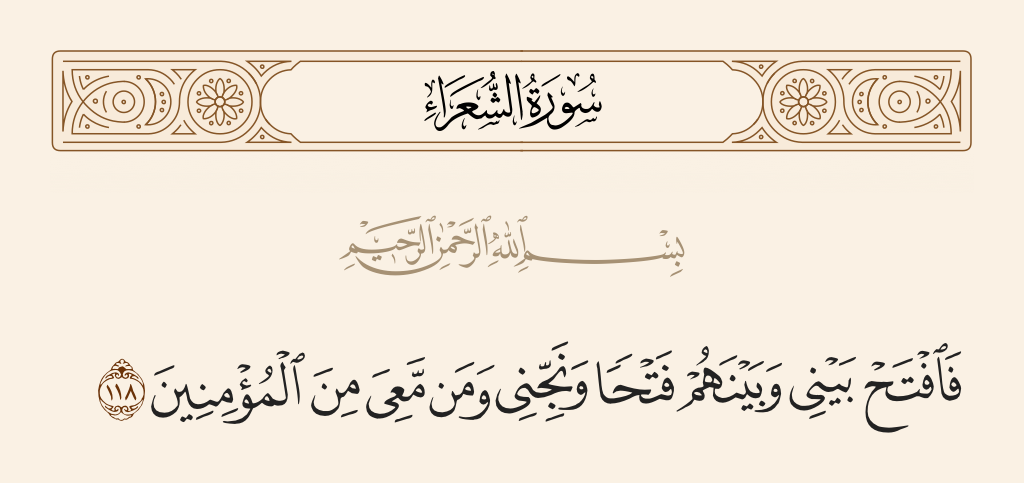 سُورَةُ الشُّعَرَاءِ
بِسْمِ ٱللَّهِ ٱلرَّحْمَٰنِ ٱلرَّحِيمِ
فَٱفْتَحْ بَيْنِى وَبَيْنَهُمْ فَتْحًا وَنَجِّنِى وَمَن مَّعِىَ مِنَ ٱلْمُؤْمِنِينَ ١١٨